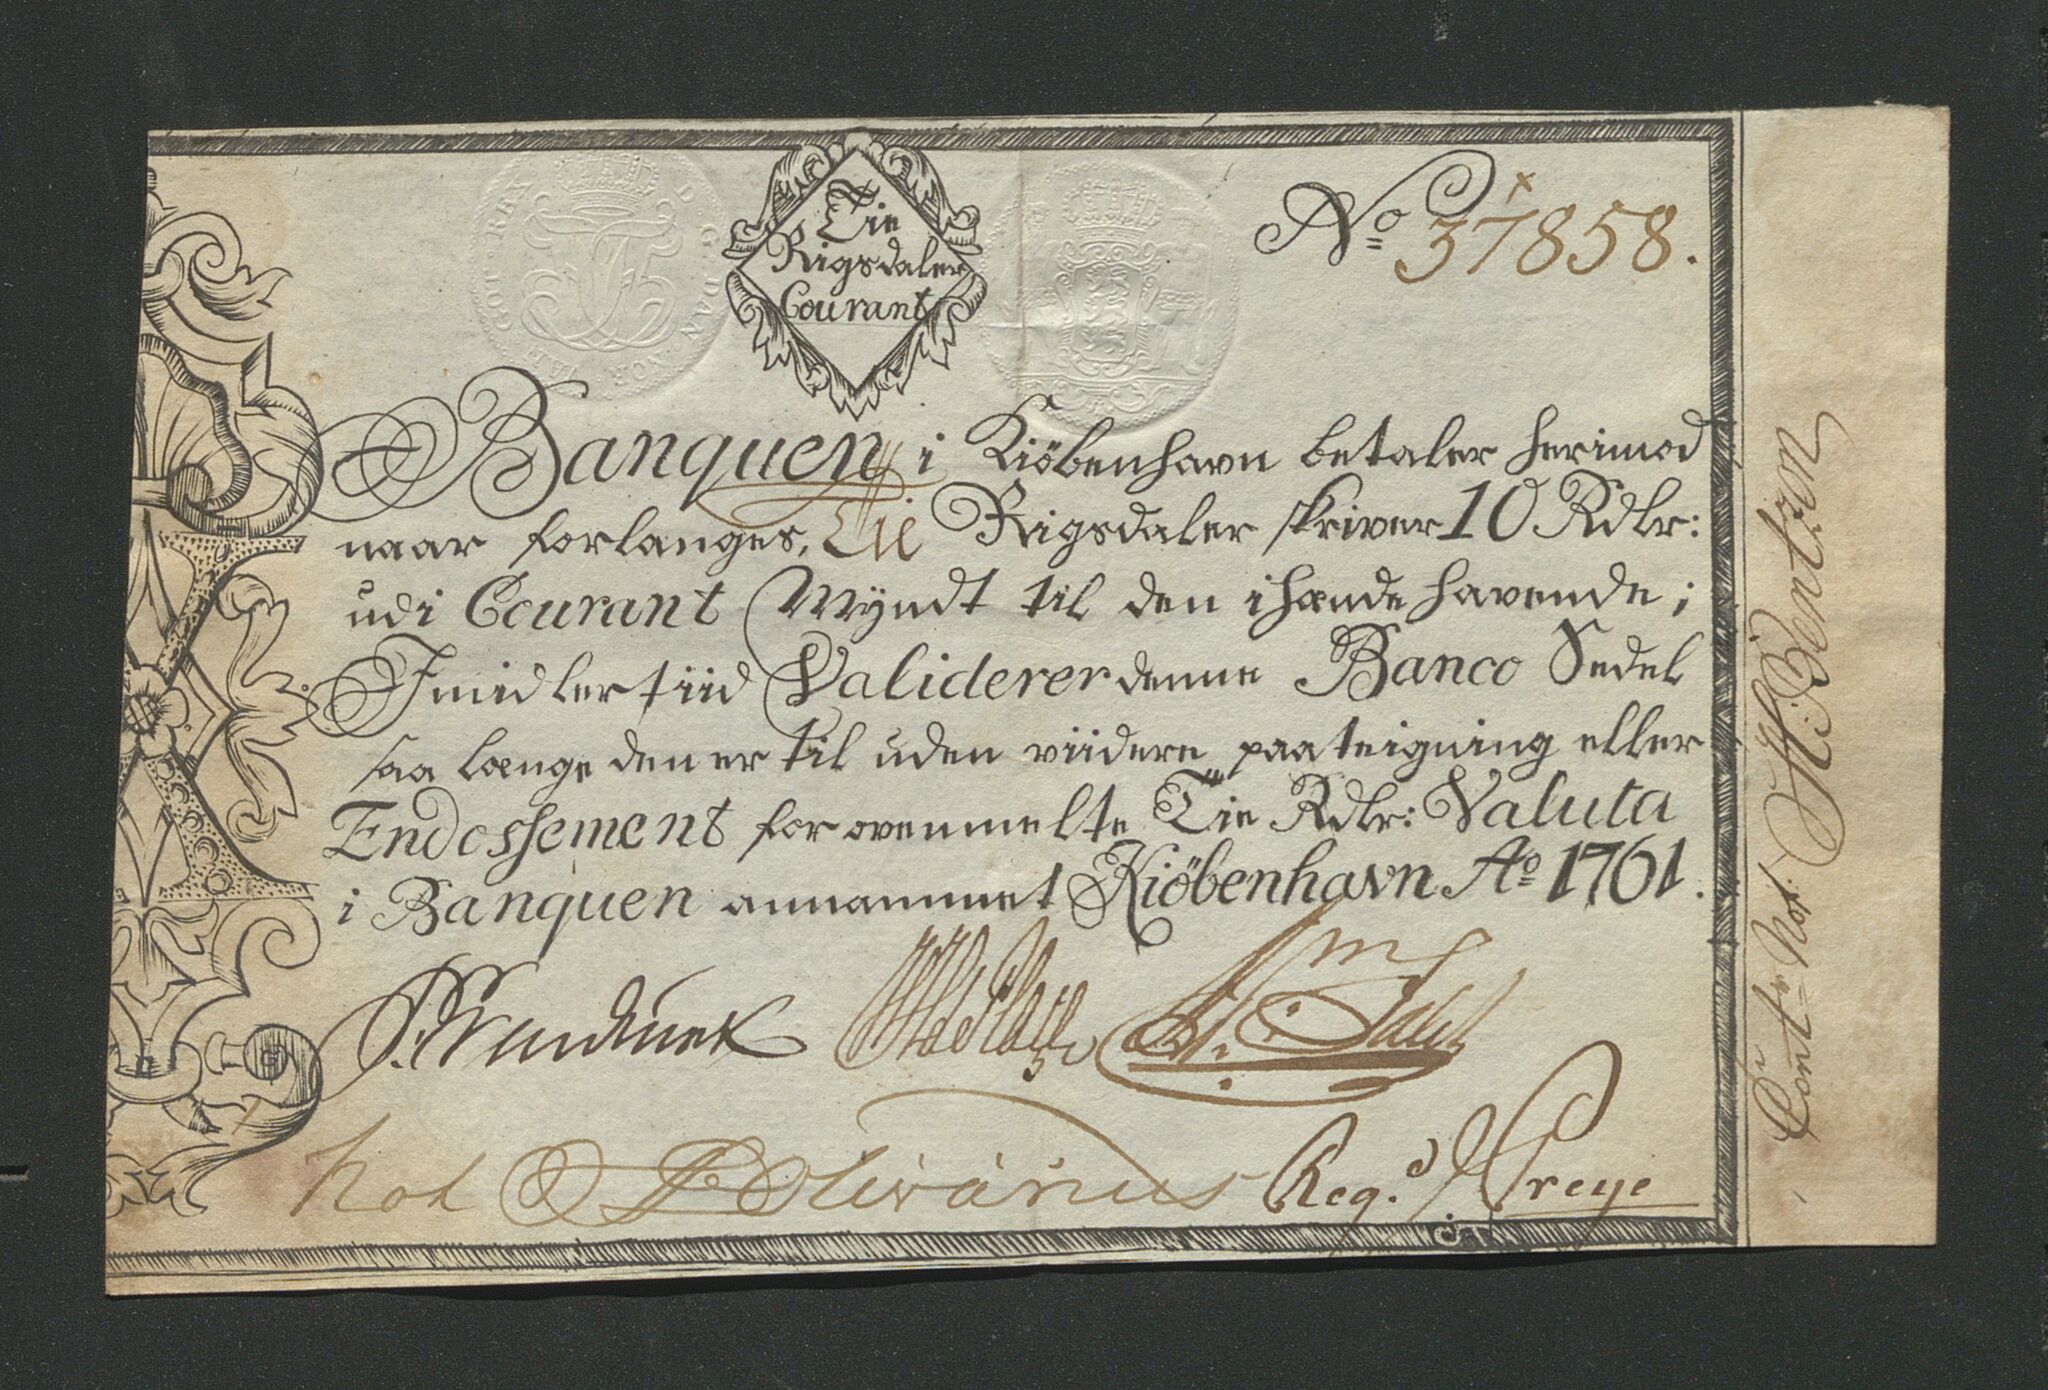 Tie
Rigsdaler
Courant
No 37858.
D. G. DAN. NOR. VAN. GOT. REX
Banquen i Kiöbenhavn betaler herimod
naar forlanges, Tie Rigsdaler skriver 10 Rdlr:
udi Courant Myndt til den ihændehavende;
Imidlertiid Validerer denne Banco Sedel
saa længe den er til uden viidere paateigning eller
Endossement for ovenmelte Tie Rdlr: Valuta
i Banquen annammet Kiöbenhavn Ao 1761.
Not Olivarius Reg. Preye
Cont. Not. H: Bentzon